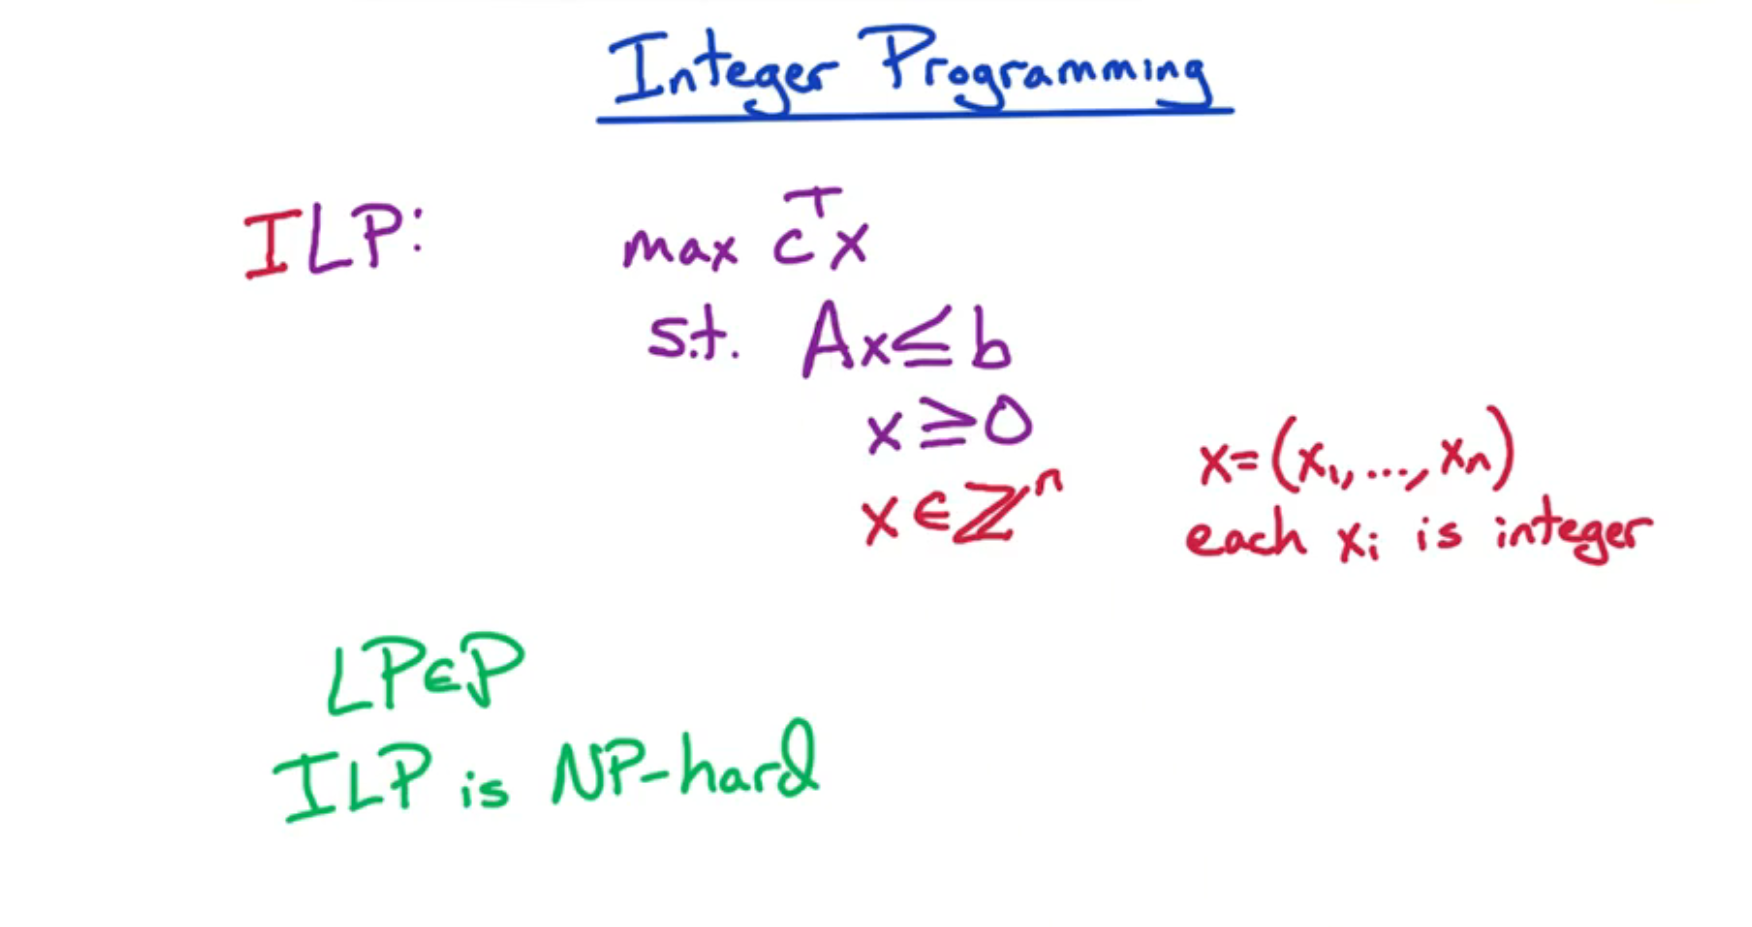 Integer Programming
ILP: max cᵀx
s.t. Ax≤b
x≥0
x∈ℤⁿ
x=(x₁,...,xₙ)
each xᵢ is integer
LP∈P
ILP is NP-hard